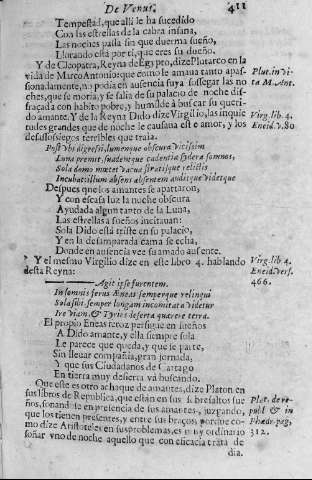 De Venus. 411
Tempestad, que alli le ha sucedido
Con las estrellas de la cabra insana,
Las noches passa sin que duerma sueño,
Llorando està por ti, que eres su dueño.
Y de Cleopatra, Reyna de Egypto, dize Plutarco en la
vida de Marco Antonio: que como le amaua tanto apas-
sionalamente, no podia en ausencia suya sossegar las no
ches, que se moria, y se salia de su palacio de noche dis-
fraçada con habito pobre, y humilde à buscar su queri-
do amante. Y de la Reyna Dido dize Virgilio, las inquie
tudes grandes que de noche le causaua este amor, y los
desassossiegos terribles que traia.
Plut. in vi-
ta M. Ant.
Virg. lib. 4.
Eneid. v. 80
Post vbi digressi, lumenque obscura vicissim
Luna premit, suadentque cadentia sydera somnos,
Sola domo mæret vacua stratisque relictis
Incubat: illum absens absentem auditque videtque
Despues que los amantes se apartaron,
Y con escasa luz la noche obscura
Ayudada algun tanto de la Luna,
Las estrellas a sueños incitauan:
Sola Dido está triste en su palacio,
Y en la desamparada cama se echa,
Donde en ausencia vee su amado ausente.
Y el mesmo Virgilio dize en este libro 4. hablando
desta Reyna:
Virg. lib. 4.
Eneid. vers.
466.
Agit ipse furentem.
In somnis ferus Æneas semperque relinqui
Sola sibi semper longam incomitata videtur
Ire viam, & Tyrios deserta quærere terra.
El propio Eneas feroz persigue en sueños
A Dido amante, y ella siempre sola
Le parece que queda, y que se parte,
Sin lleuar compañia, gran jornada,
Y que sus Ciudadanos de Cartago
En tierra muy desierta và buscando.
Que este es otro achaque de amantes, dize Platon en
sus libros de Republica, que están en sus sobresaltos sue
ños, soñandose en presencia de sus amantes, juzgando,
que los tienen presentes, y entre sus braços, porque co-
mo dize Aristoteles en sus problemas, es muy ordinario
soñar vno de noche aquello que con eficacia trata de
Plat. de re-
publ. & in
Phædr. pag.
312.
dia.